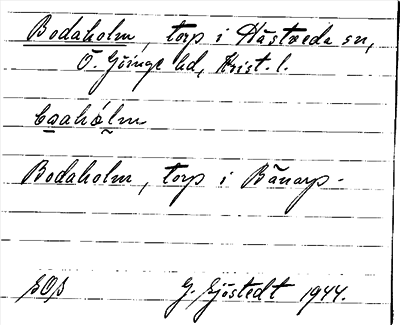 Bodaholm, torp i Hästveda sn,
Ö. Göinge hd, Krist. l.
Bodaholm, torp i Bånarp.
G. Sjöstedt 1944.